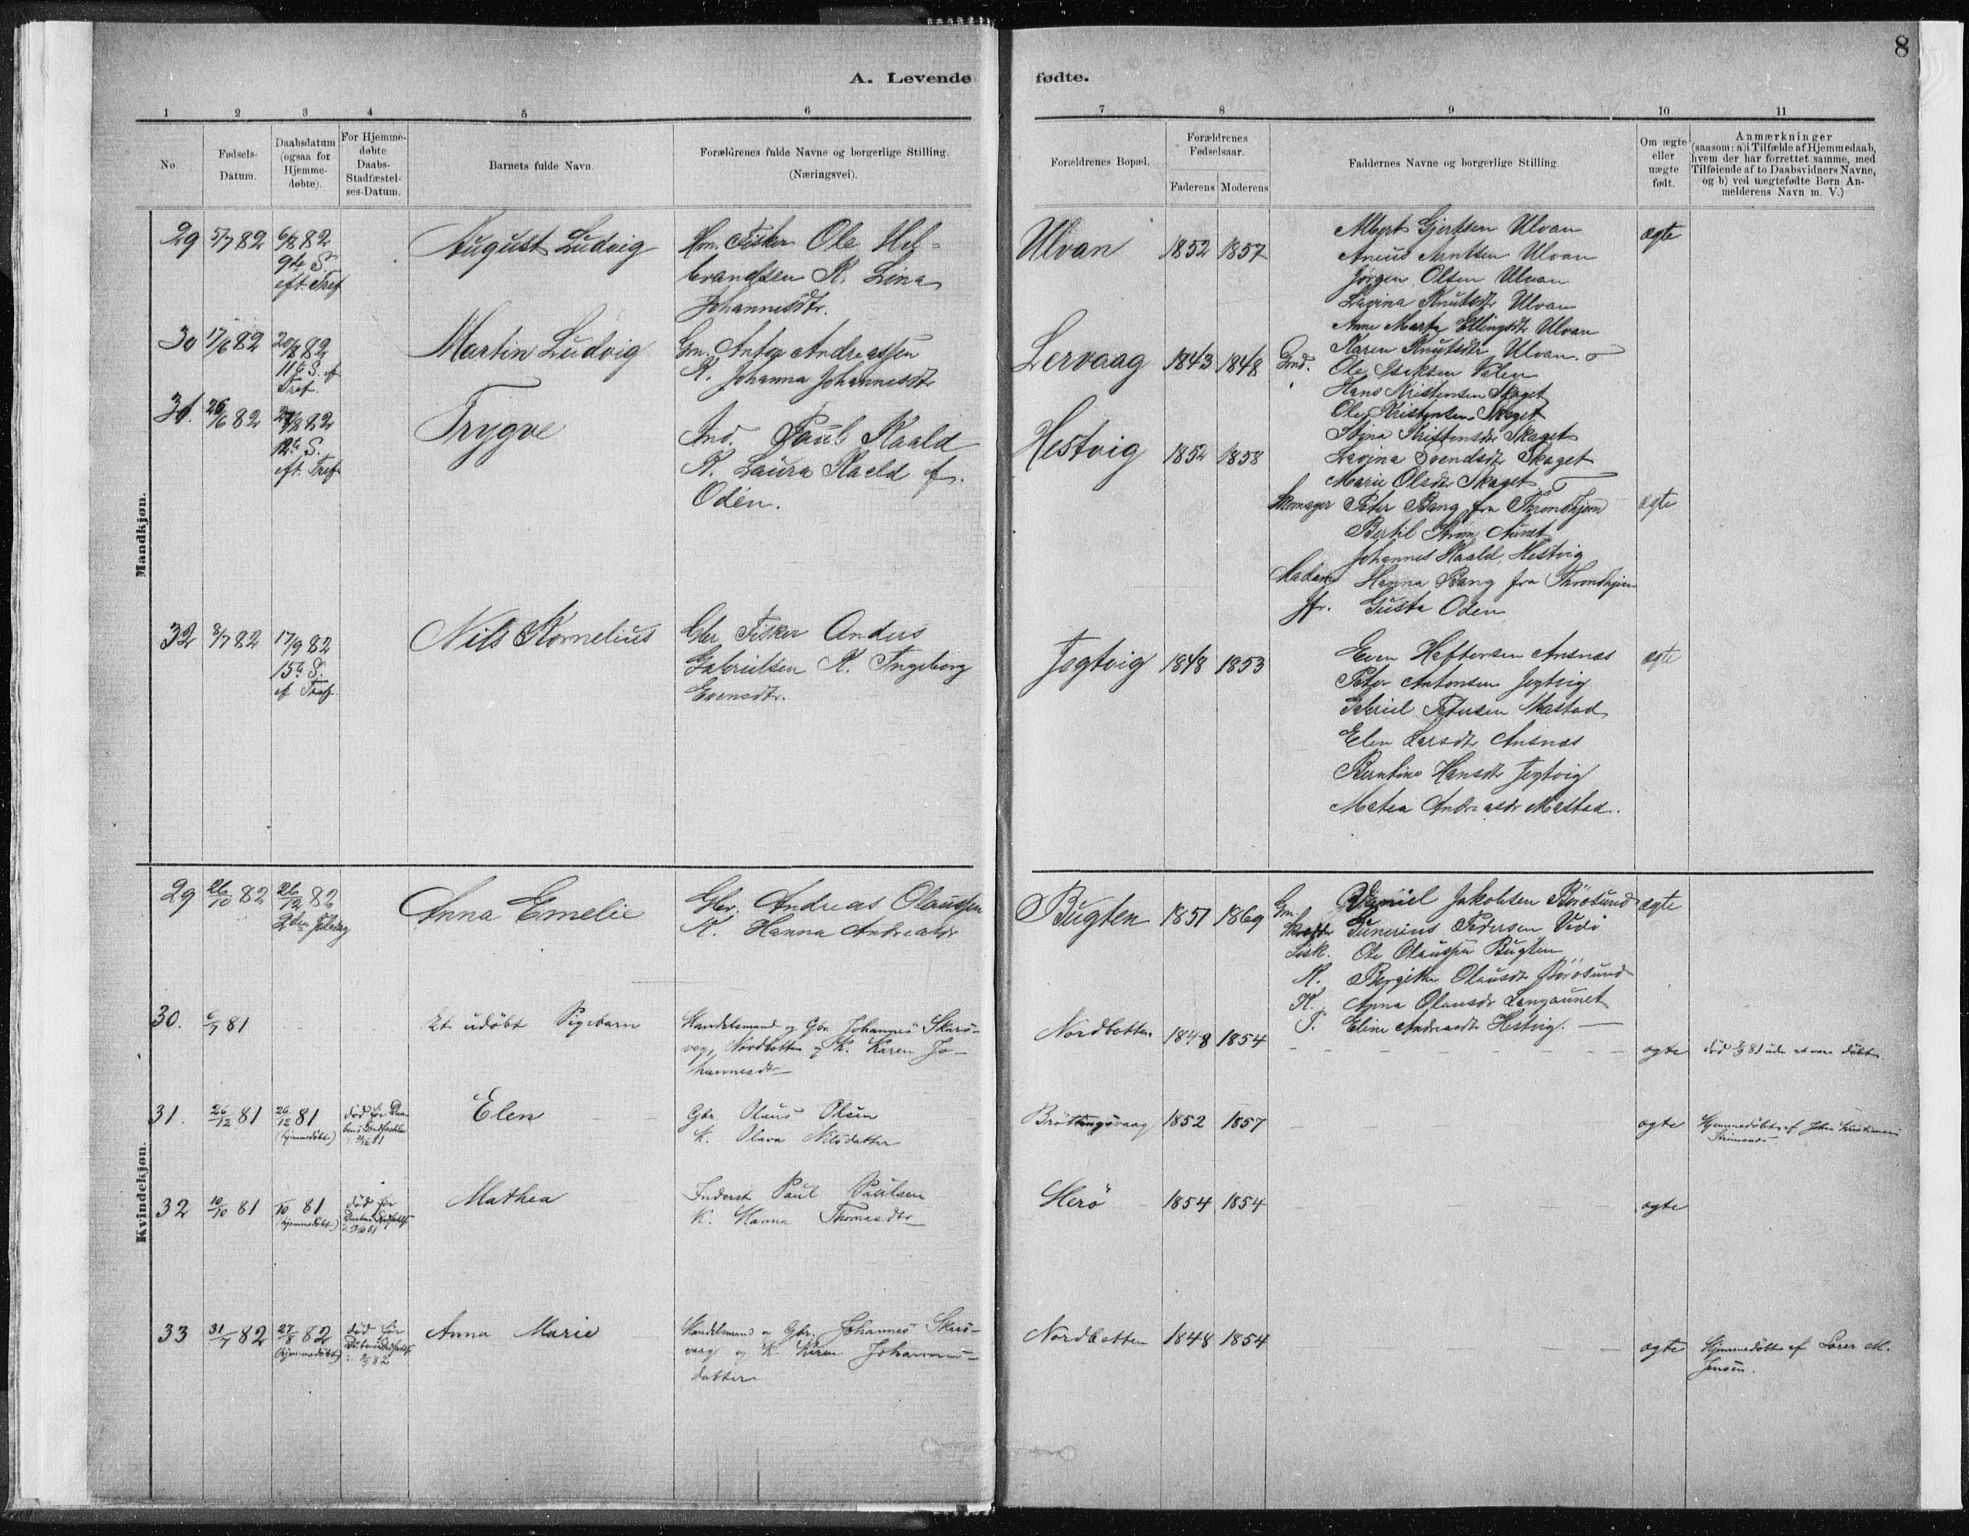 8
A. Levende fødte.
1 2 3 4 5 6 7 8 9 10 11
No.
Fødsels-Datum.
Daabsdatum (ogsaa for Hjemme-døbte).
For Hjemme-døbte Daabs-Stadfæstel-ses-Datum.
Barnets fulde Navn.
Forældrenes fulde Navne og borgerlige Stilling. (Næringsvei).
Forældrenes Bopæl.
Forældrenes Fødselsaar.
Faderens Moderens
Faddernes Navne og borgerlige Stilling.
Om ægte eller uægte født.
Anmærkninger (saasom: a) i Tilfælde af Hjemmedaab, hvem der har forrettet samme, med Tilføiende af to Daabsvidners Navne, og b) ved uægtefødte Børn An-melderens Navn m. V.)
Mandkjøn.
29 5/7 82 6/8 82
9de S. eft. Tref
August Ludvig
Hm. Fisker Ole Hel-
brandtsen K. Lina
Johannesdtr.
Ulvan 1852 1857
Albert Gjertsen Ulvan
Aneus Arntsen Ulvan
Jørgen Olsen Ulvan
Lavina Knutsdtr Ulvan
Anne Marta Ellingsdtr Ulvan
Karen Knutsdtr Ulvan.
ægte
30 17/6 82 20/8 82
11te S. ef Tref.
Martin Ludvig
Gm. Anton Andreassen
K. Johanna Johannesdtr
Lervaag 1843 1848
Gmd. Ole Isaksen Valen
Hans Kristensen Skaget
Ole Kristensen Skaget
Stina Kristensdtr Skaget
Lavina Svendsdtr Skaget
Marie Olsdtr Skaget
31. 26/6 82 27/8 82
12te S. eft. Tref
Trygve
Ind. Paul Kaald
K. Laura Kaald f.
Oden.
Hestvig 1852 1858
Skomager Peter Bang fra Throndhjem
Bertil Strøm Aunet
Johannes Kaald, Hestvig
Madam Hanna Bang fra Throndhjem
Jfr. Gusta Oden
ægte
32 8/7 82 17/9 82
15de S. ef Tref.
Nils Kornelius
Gbr Fisker Anders
Gabrielsen K. Ingeborg
Evensdtr.
Jegtvig 1848 1853
Even Heftersen Ansnæs
Peter Antonsen Jegtvig
Gabriel Petersen Mastad
Elen Larsdtr Ansnæs
Berntine Hansdtr Jegtvig
Matea Andreasdtr Mastad.
ægte
Kvindekjøn.
29 26/10 82 26/12 82
2den Juledag
Anna Emelie
Gbr. Andreas Olaussen
K. Hanna Andreasdtr
Bugten 1851 1860
Gm. Daniel Jakobsen Børøsund
Tinerius Pedersen Vedø
Fisk. Ole Olaussen Bugten
K. Bergitha Olausdtr Børøsund
K. Anna Olausdtr Langaunet
P. Eline Andreasdtr Hestvig.
ægte
30. 81
Et udøbt Pigebarn
Handelsmand og Gbr. Johannes Skarsvog, Nordbotten og K. Karen Jo-
hannesdtr
Nordbotten 1848 1854
ægte
død 81 uden at være døbt
31. 26/12 81 26/12 81
(hjemmedøbt)
Elen
Gbr Olaus Olsen
K. Olava Nilsdatter
Brøttingsvaag 1852 1857
ægte
Hjemmedøbt af Johan Kristiansen
32 10/10 81 /10 81
(hjemmedøbt)
Mathea
Inderst Paul Paulsen
K. Hanna Thomasdtr
Herø 1854 1854
ægte
33 31/7 82 27/8 82
(hjemmedøbt)
død før
82
Anna Marie
Handelsmand og Gbr. Johannes Skars-
vog og K. Karen Johannes-
datter
Nordbotten 1848 1854
ægte
Hjemmedøbt af Sorer M.
Jensen.